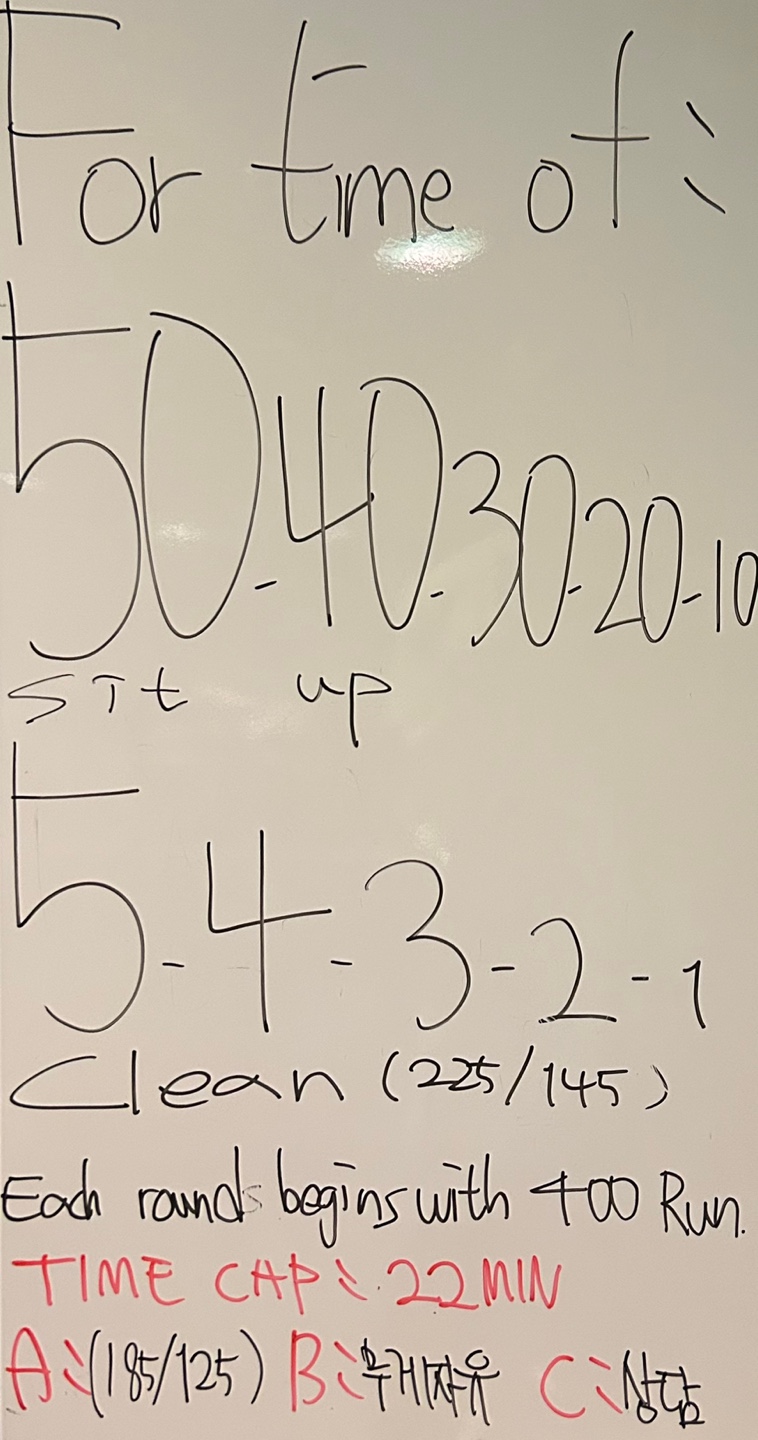 For time of:
50-40-30-20-10
sit up
5-4-3-2-1
Clean (225/145)
Each round begins with 400 Run.
TIME CAP: 22MIN
A:(185/125) B:무게자유 C:상담